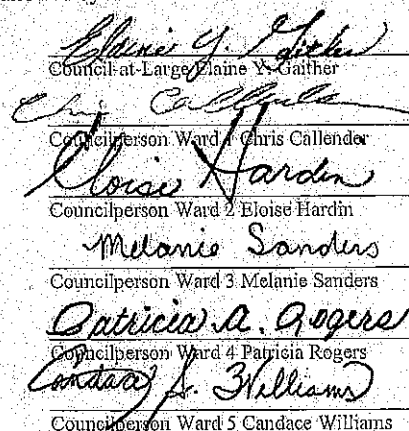 Elaine Y. Gaither
Council-at-Large Elaine Y. Gaither
Chris Callender
Councilperson Ward 1 Chris Callender
Eloise Hardin
Councilperson Ward 2 Eloise Hardin
Melanie Sanders
Councilperson Ward 3 Melanie Sanders
Patricia A. Rogers
Councilperson Ward 4 Patricia Rogers
Candace S. Williams
Councilperson Ward 5 Candace Williams